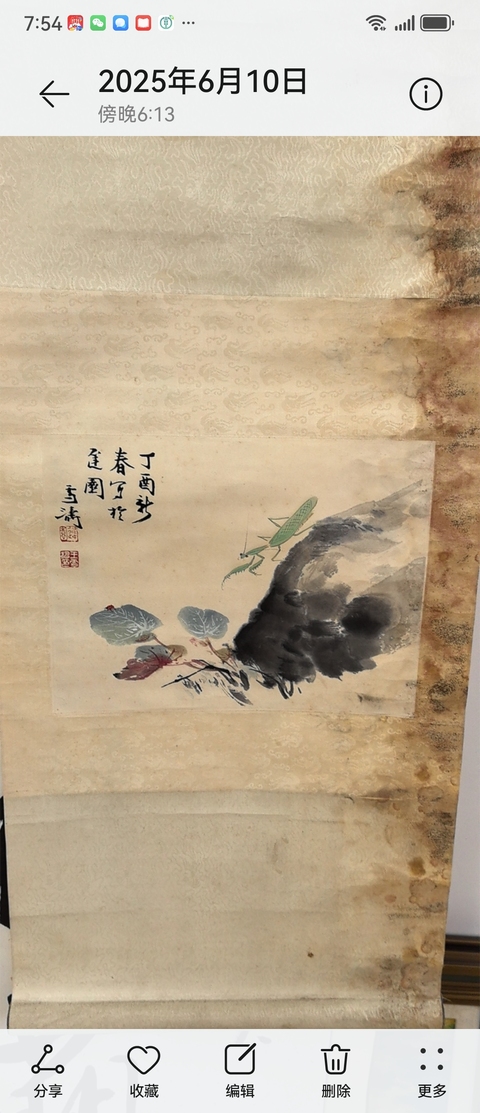 7:54
2025年6月10日
傍晚6:13
丁酉新
春写於
迟园
雪涛
分享
收藏
编辑
删除
更多